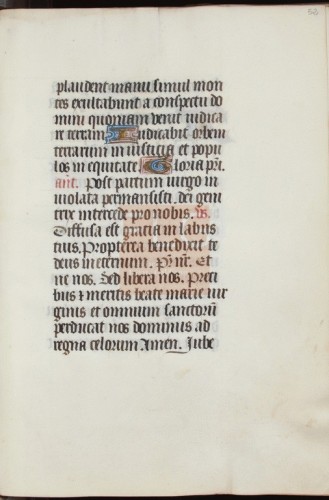 plaudent manu simul mon
tes exultabunt a conspectu do
mini quoniam venit iudica
re terram Iudicabit orbem
terrarum in iusticia et popu
los in equitate. Gloria pri.
ant. Post partum virgo in
violata permansisti. dei geni
trix intercede pro nobis. vs.
Diffusa est gracia in labiis
tuis. Propterea benedixit te
deus in eternum. Pr. nr. Et
ne nos. Sed libera nos. Preci
bus et meritis beate marie vir
ginis et omnium sanctorum
perducat nos dominus ad
regna celorum Amen. Iube